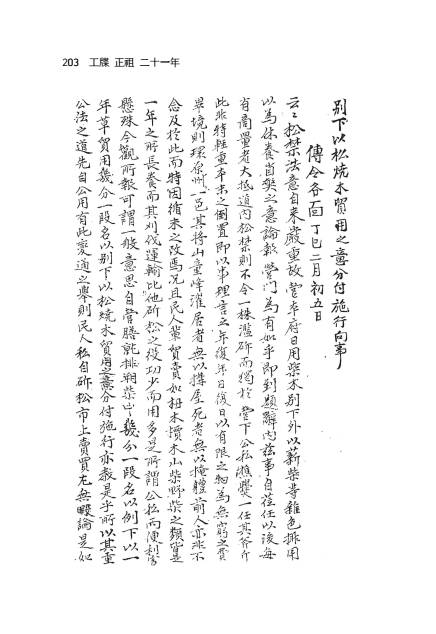 203 工牒 正祖 二十一年
別下以松燒木貿用之意分付施行向事
傳令各面 丁巳二月初五日
云々松禁法意自來嚴重故營本府日用柴木別下外以薪柴等雜色排用
以爲休養自葵之意論報營門爲有如乎即到題辭內玆事自莅任以後每
有商量者大抵道內松禁則不令一株濫斫而獨於營下公私樵爨一任其斧斤
此非特輕重本末之倒置即以事理言之年復年日復日以有限之物爲無窮之費
畢境則環原州一邑其將山童峰濯居者無以搆屋死者無以掩軆前人亦非不
念及於此而特因循未之改焉況且民人輩貿賣如杻木損木山柴野柴之類皆是
一年之所長養而其刈伐運輸比他斫松之役功少而用多是所謂公私兩便利害
懸殊今觀所報可謂一般意思自營膳㲯排朔柴中幾分一段名以例下以一
年草貿用幾分一段名以別下以松燒木貿用之意分付施行亦敎是乎所以其重
公法之道先自公用有此變通之擧則民人私自斫松市上賣買尤無暇論是如